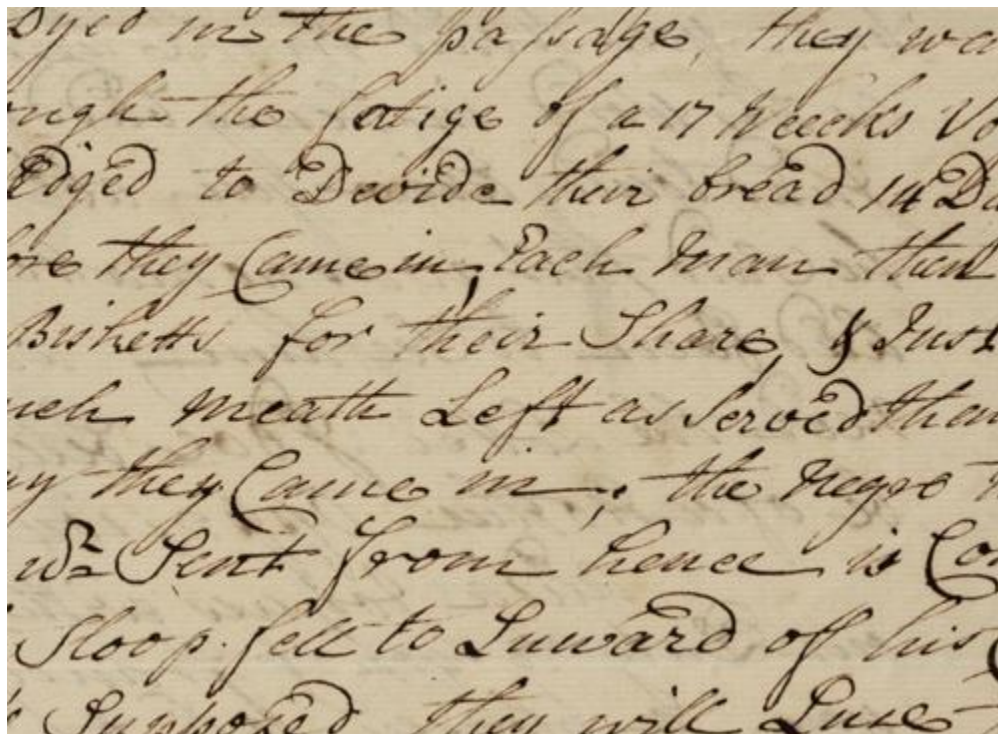 Dyed in the passage, they we
ough the fatige of a 17 Weeeks Vo
Edged to Devide their bread 14 Da
ore they Came in, Each Man then
Bisketts for their Share, & Just
uch meath Left as Served them
ay they Came in; the Negro
wch Sent from hence is Con
Sloop fell to Luward of his
Supposed they will Luse